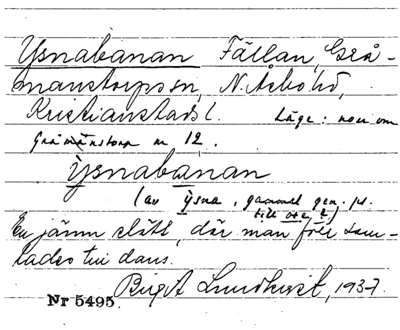 Ysnabanan Fällan, Grå-
manstorps sn, N. Åsbo hd,
Kristianstads l. Läge: norr om
Gråmanstorp nr 12.
Ysnabanan
(av ysna, gammal gen. pl.
till
En jämn slätt, där man förr sam-
lades till dans.
Birgit Lundkvist, 1937.
Nr 5495